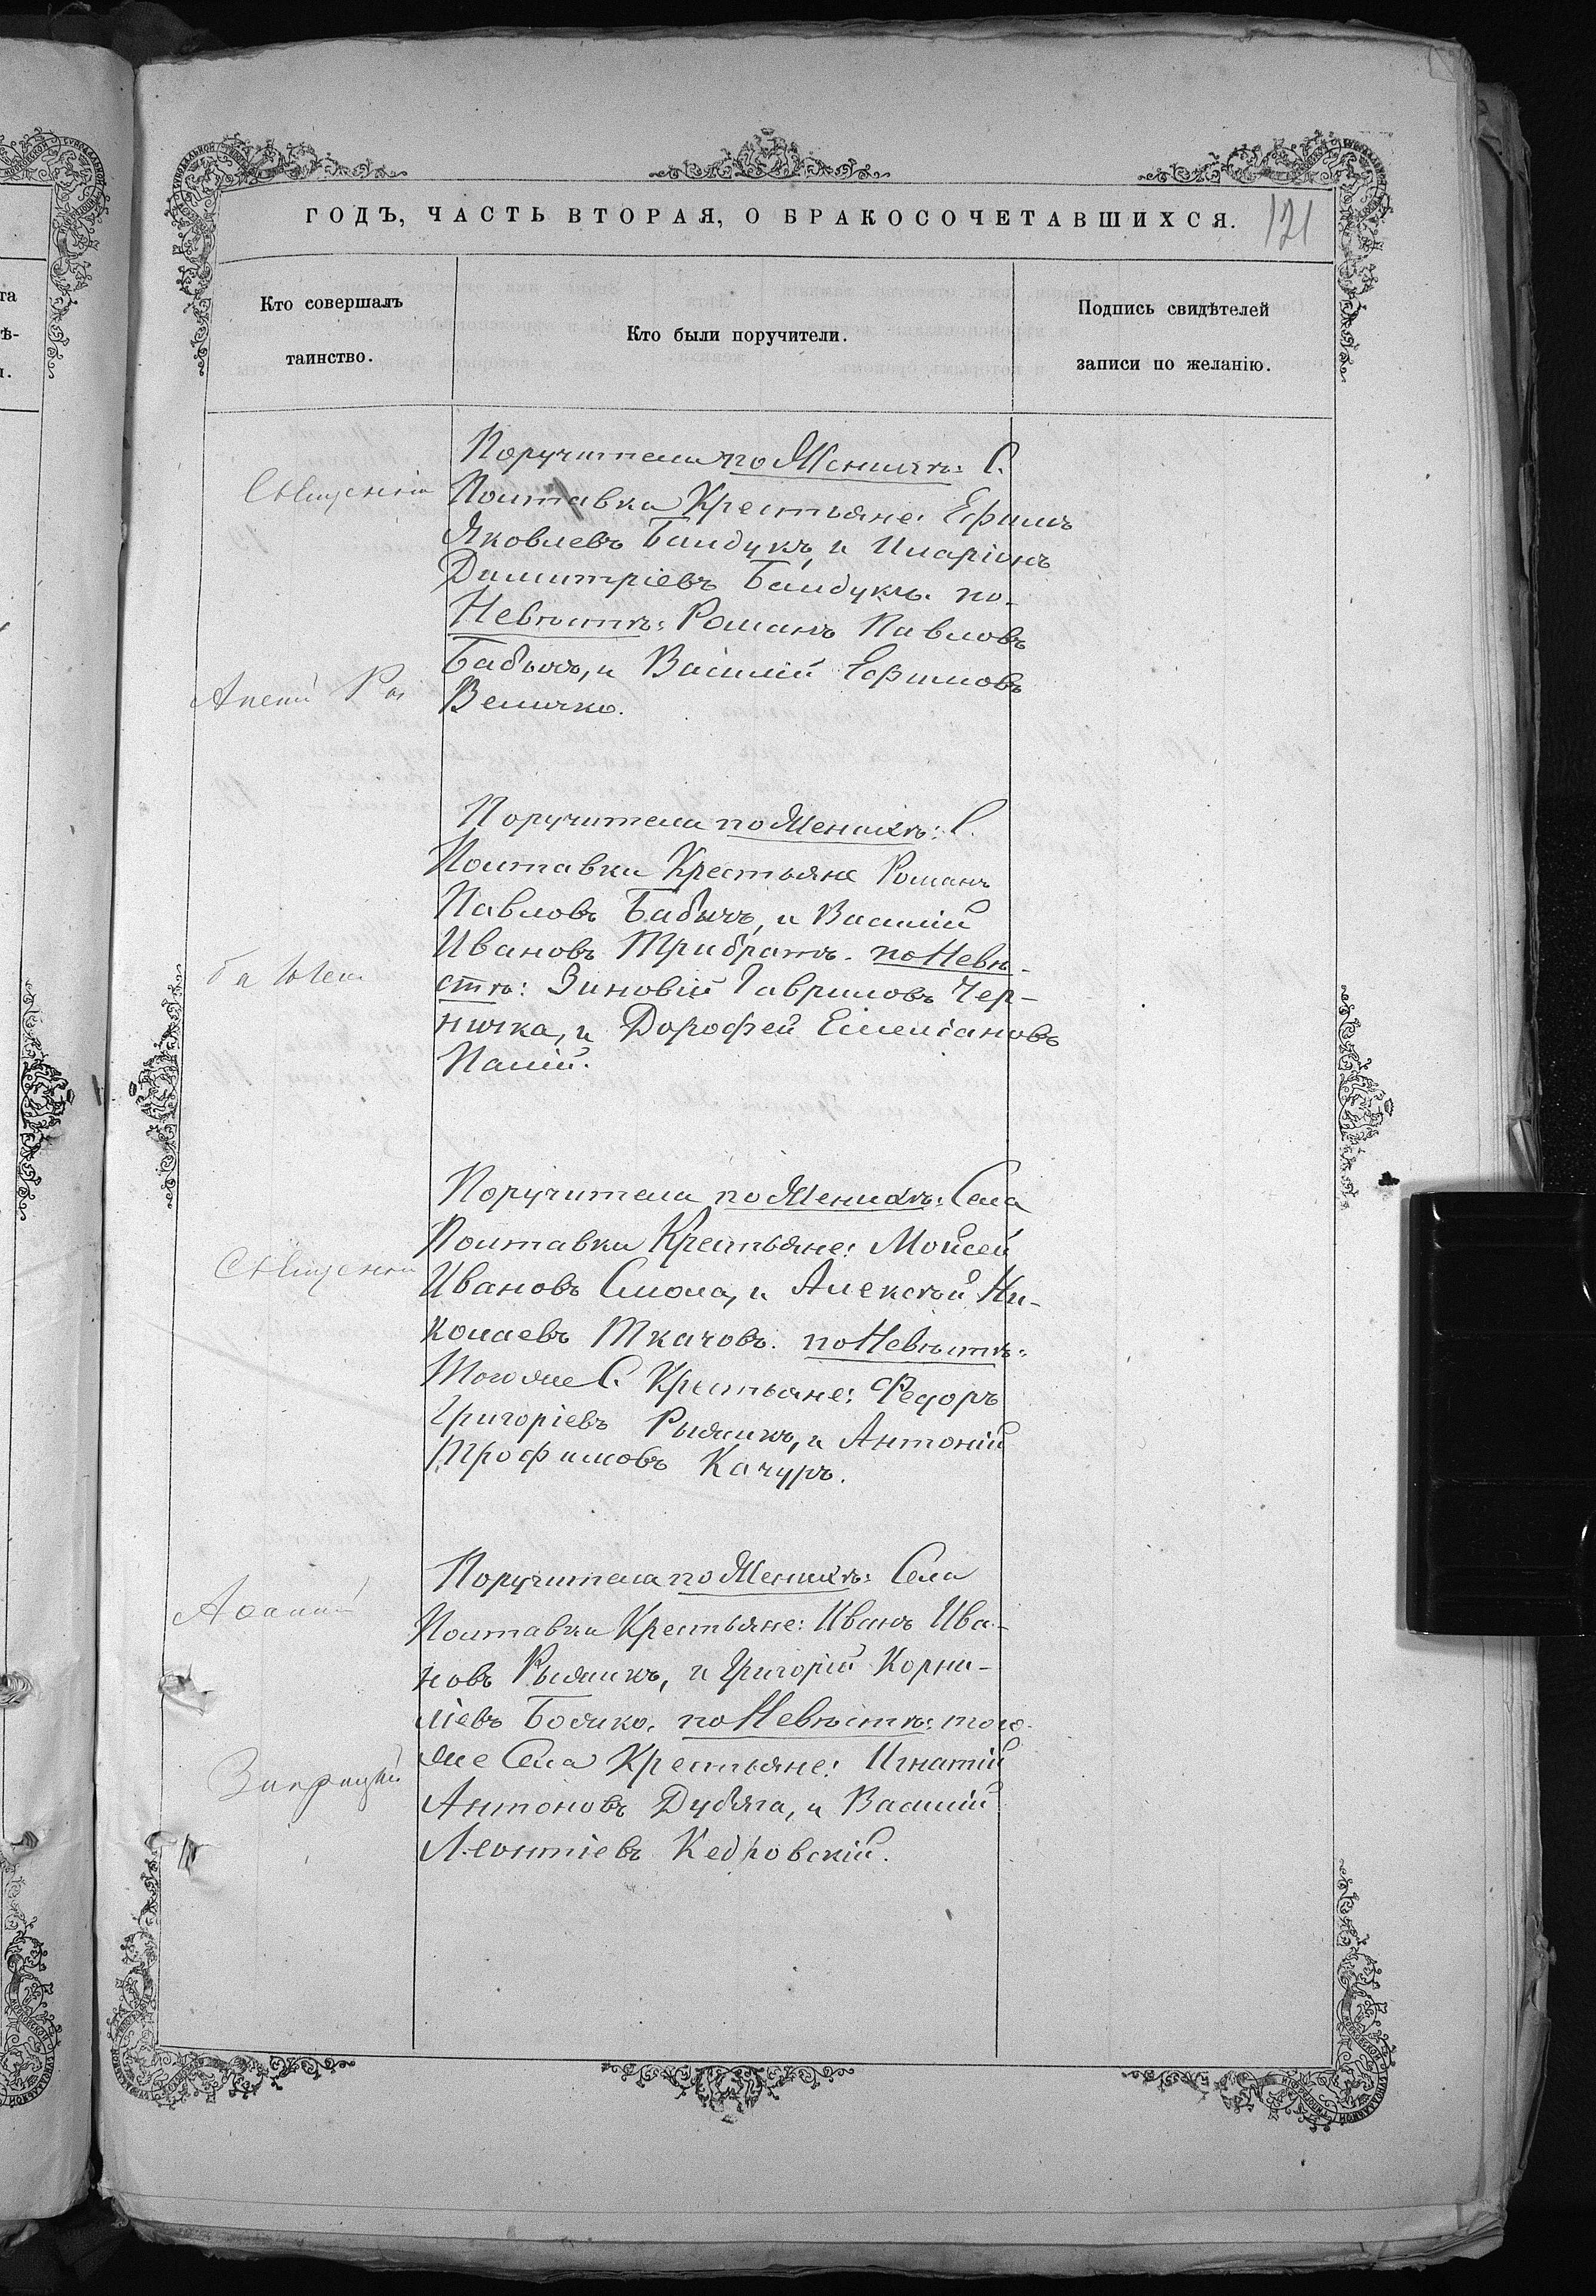 ГОДЪ, ЧАСТЬ ВТОРАЯ, О БРАКОСОЧЕТАВШИХСЯ.
121
Кто совершалъ
таинство.
Кто были поручители.
Подпись свидѣтелей
записи по желанію.
Поручители по Женихѣ: С.
Полтавки Крестьяне: Ефимъ
Яковлевъ Баидукъ, и Иларіонъ
Димитріевъ Баидукъ. по-
Невѣстѣ: Романъ Павловъ
Бабичъ, и Василій Ефимовъ
Величко.
Поручители по Женихѣ: С.
Полтавки Крестьяне Романъ
Павловъ Бабичъ, и Василій
Ивановъ Трибратъ. по Невѣ-
стѣ: Зиновій Гавриловъ Чер-
ничка, и Дорофей Емеліановъ
Палій.
Поручители по Женихѣ: Села
Полтавки Крестьяне: Моисей
Ивановъ Смола, и Алексѣй Ни-
колаевъ Ткачовъ. по Невѣстѣ:
Тогоже С. Крестьяне: Федоръ
Григоріевъ Рыжикъ, и Антоній
Трофимовъ Качуръ.
Поручители по Женихѣ: Села
Полтавки Крестьяне: Иванъ Ива-
новъ Рыжикъ, и Григорій Корни-
ліевъ Божко. по Невѣстѣ: того-
же Села Крестьяне: Игнатій
Антоновъ Дубяга, и Василій
Леонтіевъ Кедровскій.